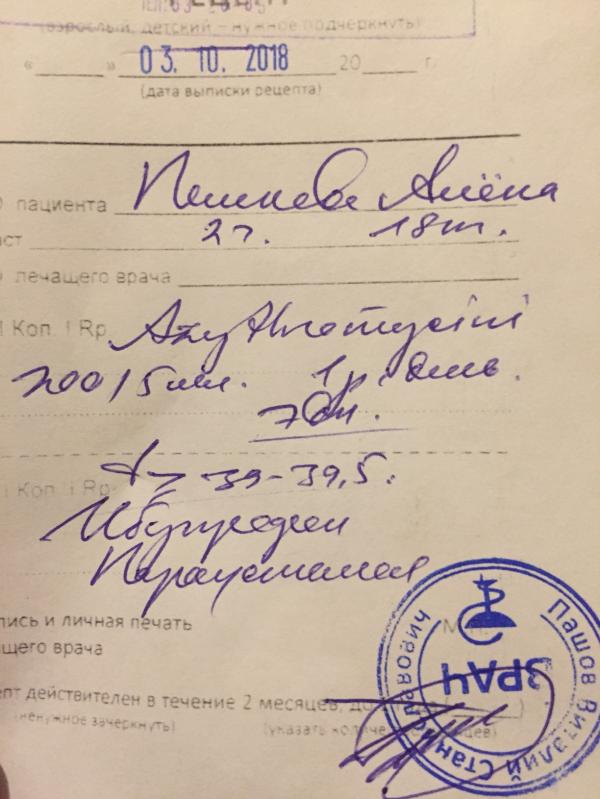 (взрослый, детский – нужное подчеркнуть)
« » 03. 10. 2018 20 г.
(дата выписки рецепта)
пациента Алёна
2 г.
лечащего врача
Коп. Rp. Azythromycini
200/5мл. 1 р. день.
7 дн.
Коп. Rp. t > 39-39,5.
Ибупрофен
Парацетамол
пись и личная печать М.П.
щего врача
пт действителен в течение 2 месяцев, до
(ненужное зачеркнуть) (указать колич
ВРАЧ
Пашов Виталий